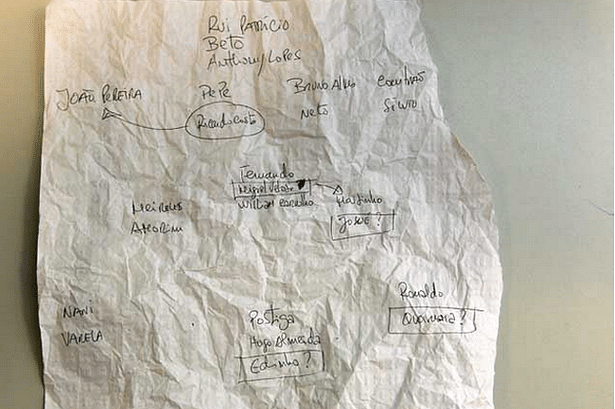 Rui Patrício
Beto
Anthony Lopes
João Pereira
Pepe
Bruno Alves
Coentrão
Ricardo Costa
Neto
Silvio
Fernando
Miguel Veloso
William Carvalho
Meireles
Amorim
Moutinho
Josué?
Nani
Varela
Postiga
Hugo Almeida
Edinho?
Ronaldo
Quaresma?